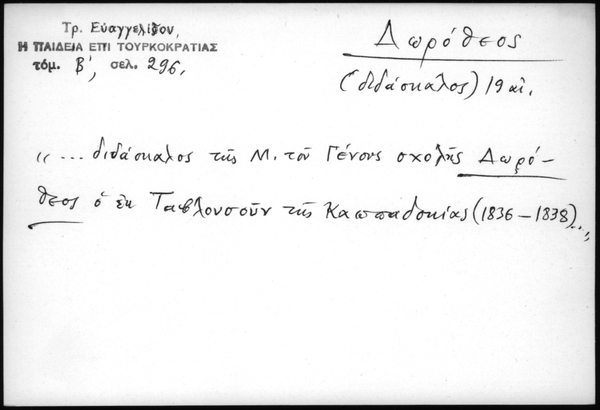 Τρ. Εὐαγγελίδου,
Η ΠΑΙΔΕΙΑ ΕΠΙ ΤΟΥΡΚΟΚΡΑΤΙΑΣ
τόμ. Β', σελ. 296.
Δωρόθεος
(διδάσκαλος) 19 αἰ.
"... διδάσκαλος τῆς Μ. τοῦ Γένους σχολῆς Δωρό-
θεος ὁ ἐκ Ταβλουσοῦν τῆς Καππαδοκίας (1836 – 1838)..."